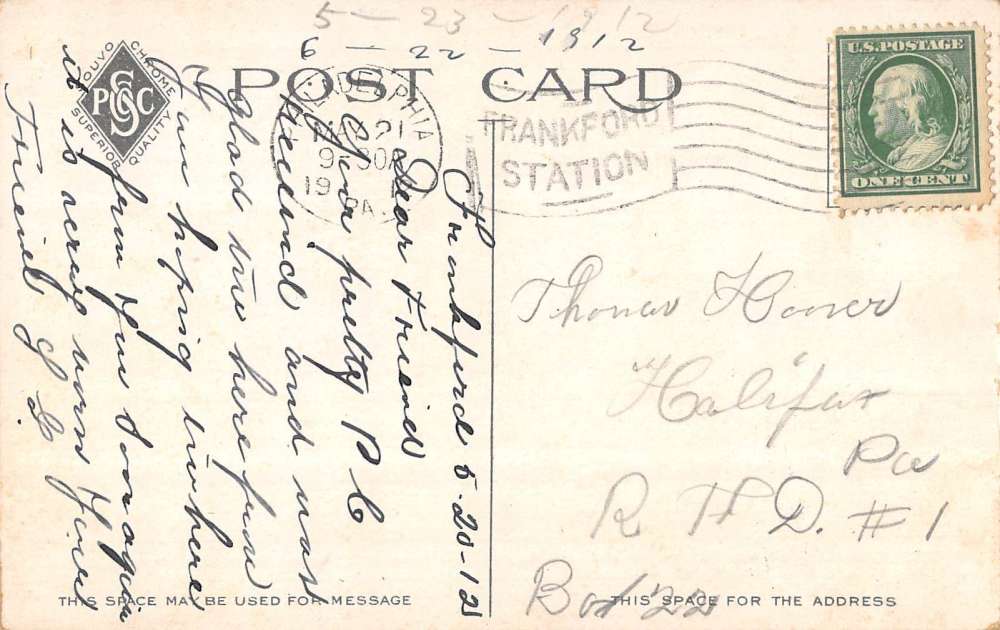 5-23-1912
6-22-1912
POST CARD
LOUVO CHROME
PSCC
SUPERIOR QUALITY
PHILADELPHIA
MAY 21
9-30A
PA.
FRANKFORD
STATION
U.S. POSTAGE
ONE CENT
Frankford 5-20-12
Dear Friend
Your pretty P C
Received and was
Glad to here from
you hoping to here
from you soon again
it is acrey worm here
Friend
Thomas Hoover
Halifax
Pa
R F D. #1
Box 22
THIS SPACE MAY BE USED FOR MESSAGE
THIS SPACE FOR THE ADDRESS